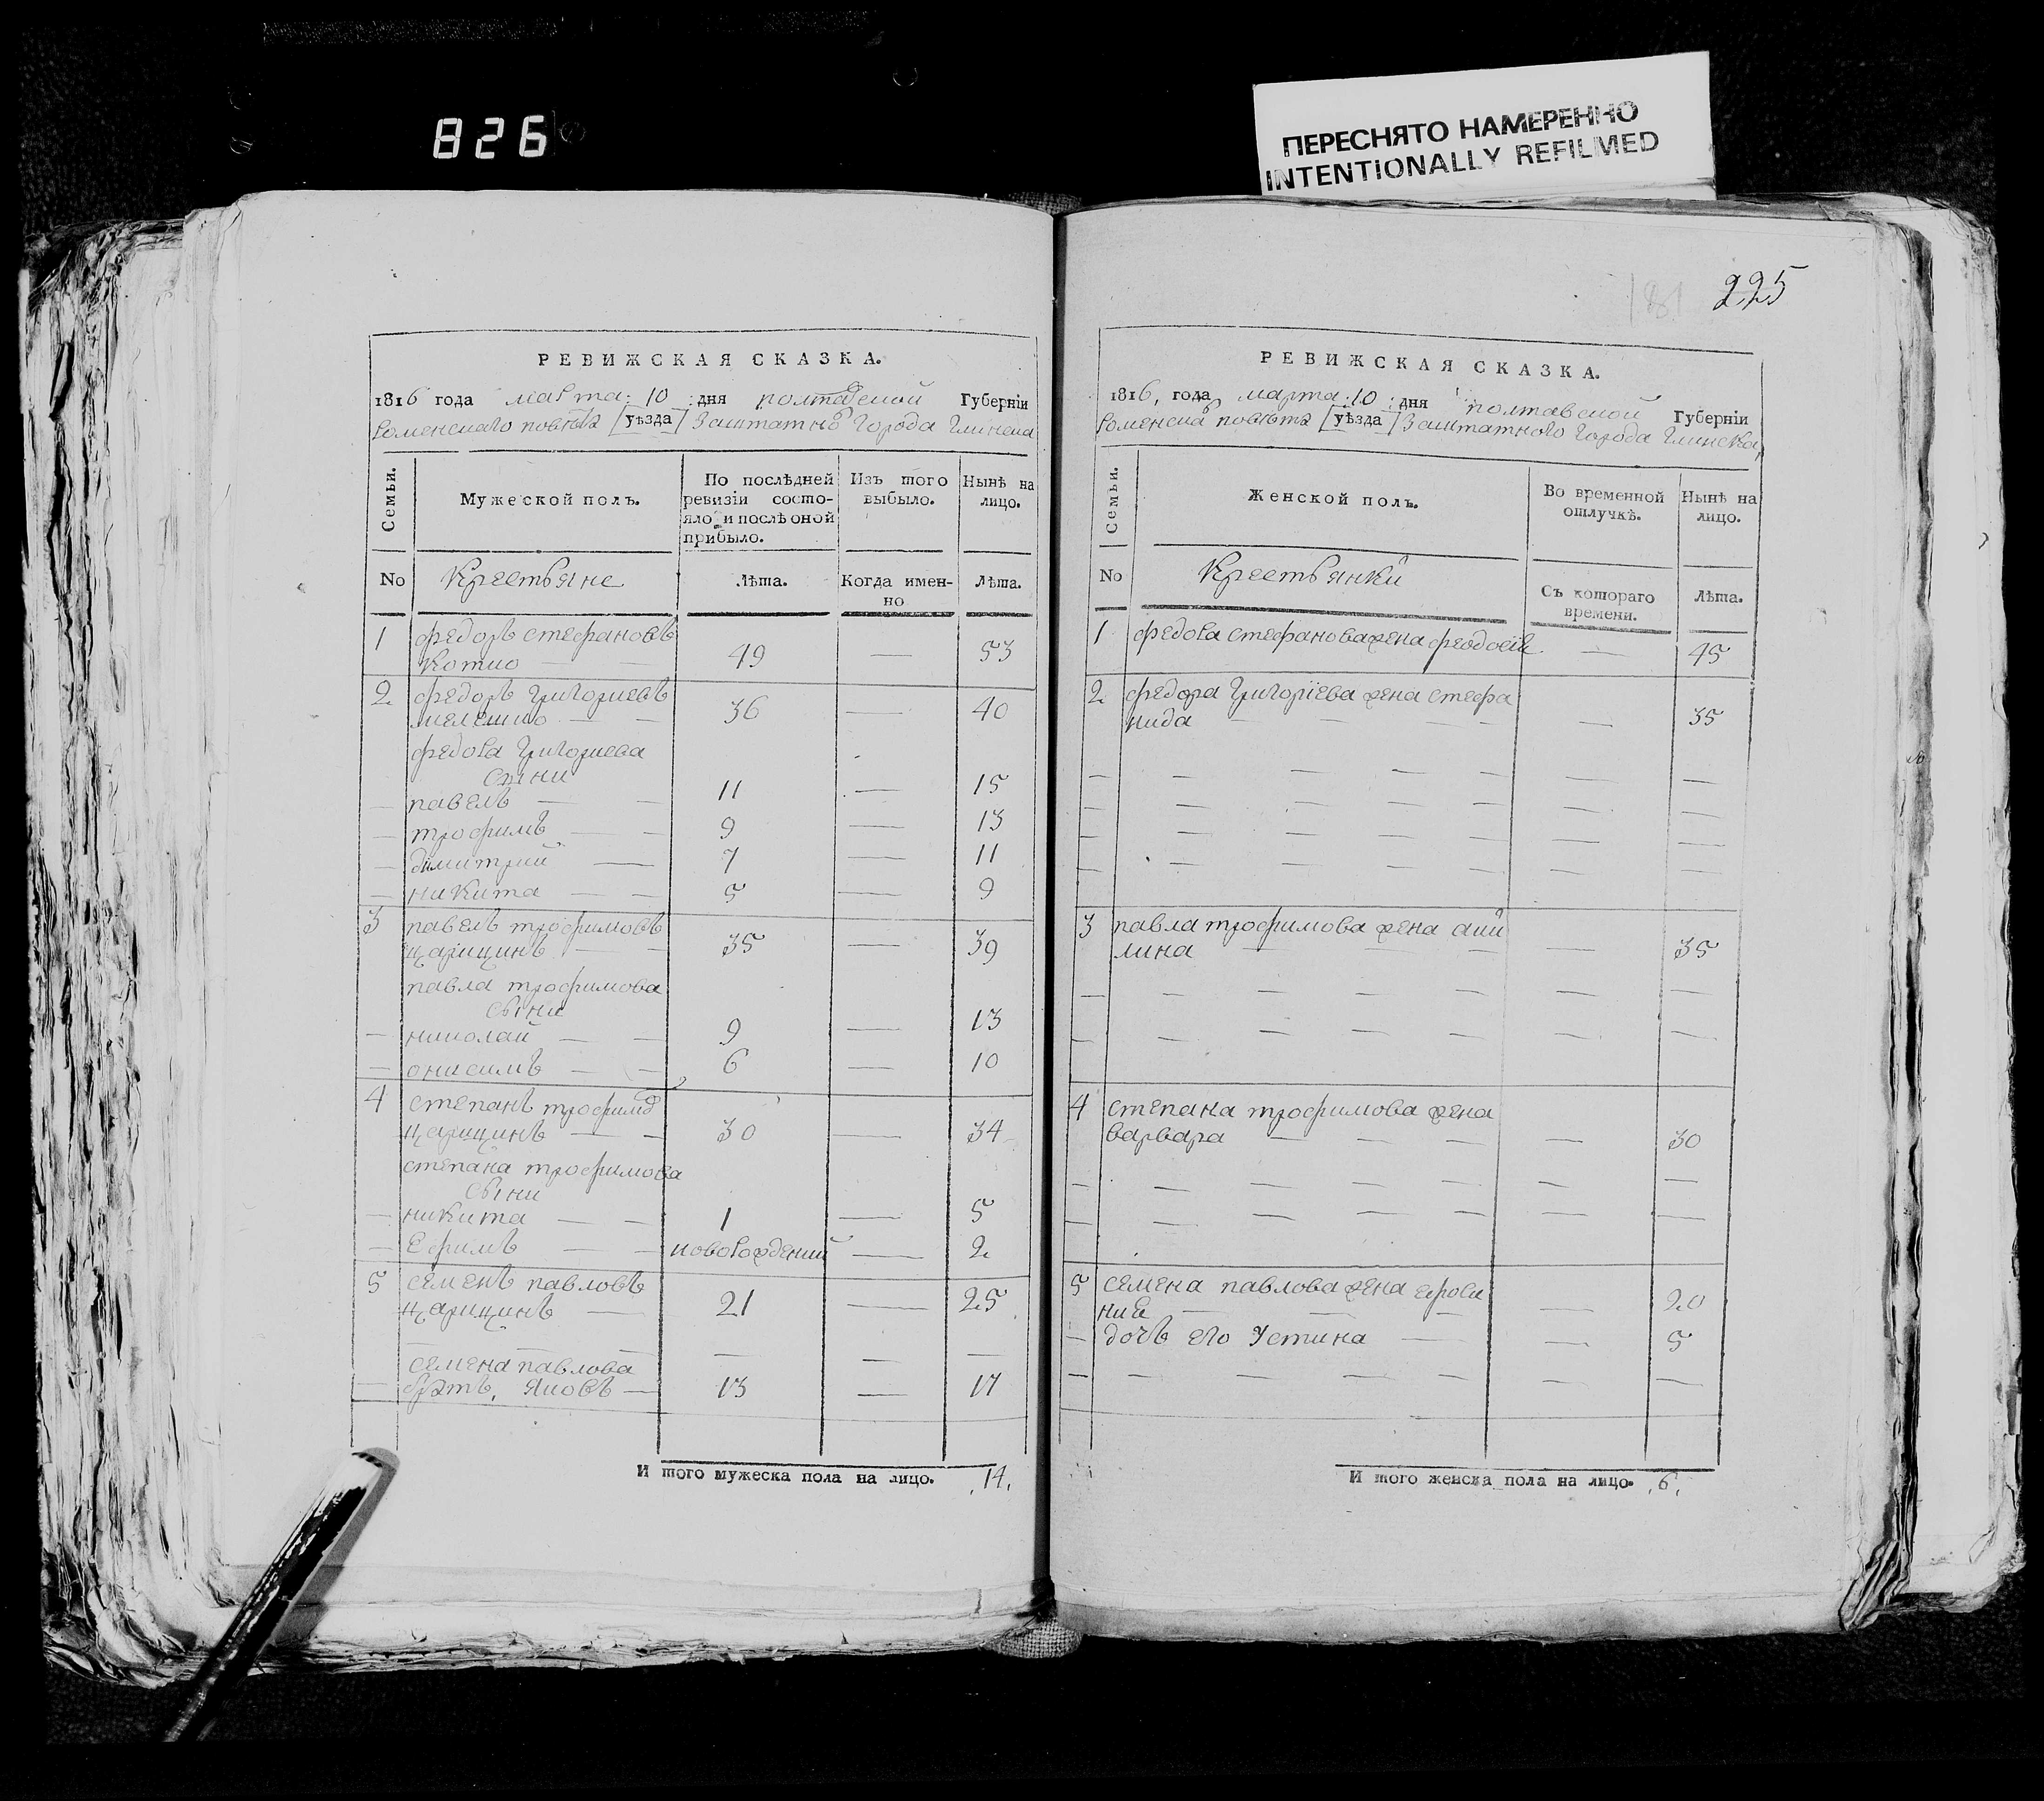 826
ПЕРЕСНЯТО НАМЕРЕННО
INTENTIONALLY REFILMED
181
225
РЕВИЖСКАЯ СКАЗКА.
1816 года марта: 10 :дня полтавской Губерніи
Роменскаго повѣта [уѣзда] Заштатнго Города Глинска
Семьи. Мужеской полъ. По послѣдней ревизіи состо- Изъ того Нынѣ на
яло и послѣ оной прибыло. выбыло. лицо.
No Крестьяне Лѣта. Когда имен- Лѣта.
но
1 федоръ стефановъ
котко — — 49 — 53
2 федоръ григориевъ
мелешко — — 36 — 40
федора григориева
сыни
— павелъ — — 11 — 15
— трофимъ — — 9 — 13
— димитрий — 7 — 11
— никита — — 5 — 9
3 павелъ трофимовъ
царицинъ — — 35 — 39
павла трофимова
сыни
— николай — — 9 — 13
— онисимъ — — 6 — 10
4 степанъ трофимо
царицинъ — — 30 — 34
степана трофимова
сыни
— никита — — 1 — 5
— Ефимъ — — новорождений — 2
5 семенъ павловъ
царицинъ — 21 — 25
— — — — — —
семена павлова
— братъ, яковъ — 13 — 17
И того мужеска пола на лицо. 14.
РЕВИЖСКАЯ СКАЗКА.
1816, года марта :10: дня полтавской Губерніи
Роменска повѣта [уѣзда] Заштатного Города Глинска,
Семьи. Женской полъ. Во временной Нынѣ на
отлучкѣ. лицо.
No Крестьянки Съ котораго Лѣта.
времени.
1 федора стефанова жена феодосія — 45
2 федора григоріева жена стефа
нида — — — — — 35
3 павла трофимова жена аки
лина — — — — 35
4 степана трофимова жена
варвара — — — — 30
5 семена павлова жена ефроси
ния — — — — 20
— дочъ его Устина — — 5
И того женска пола на лицо. 6.